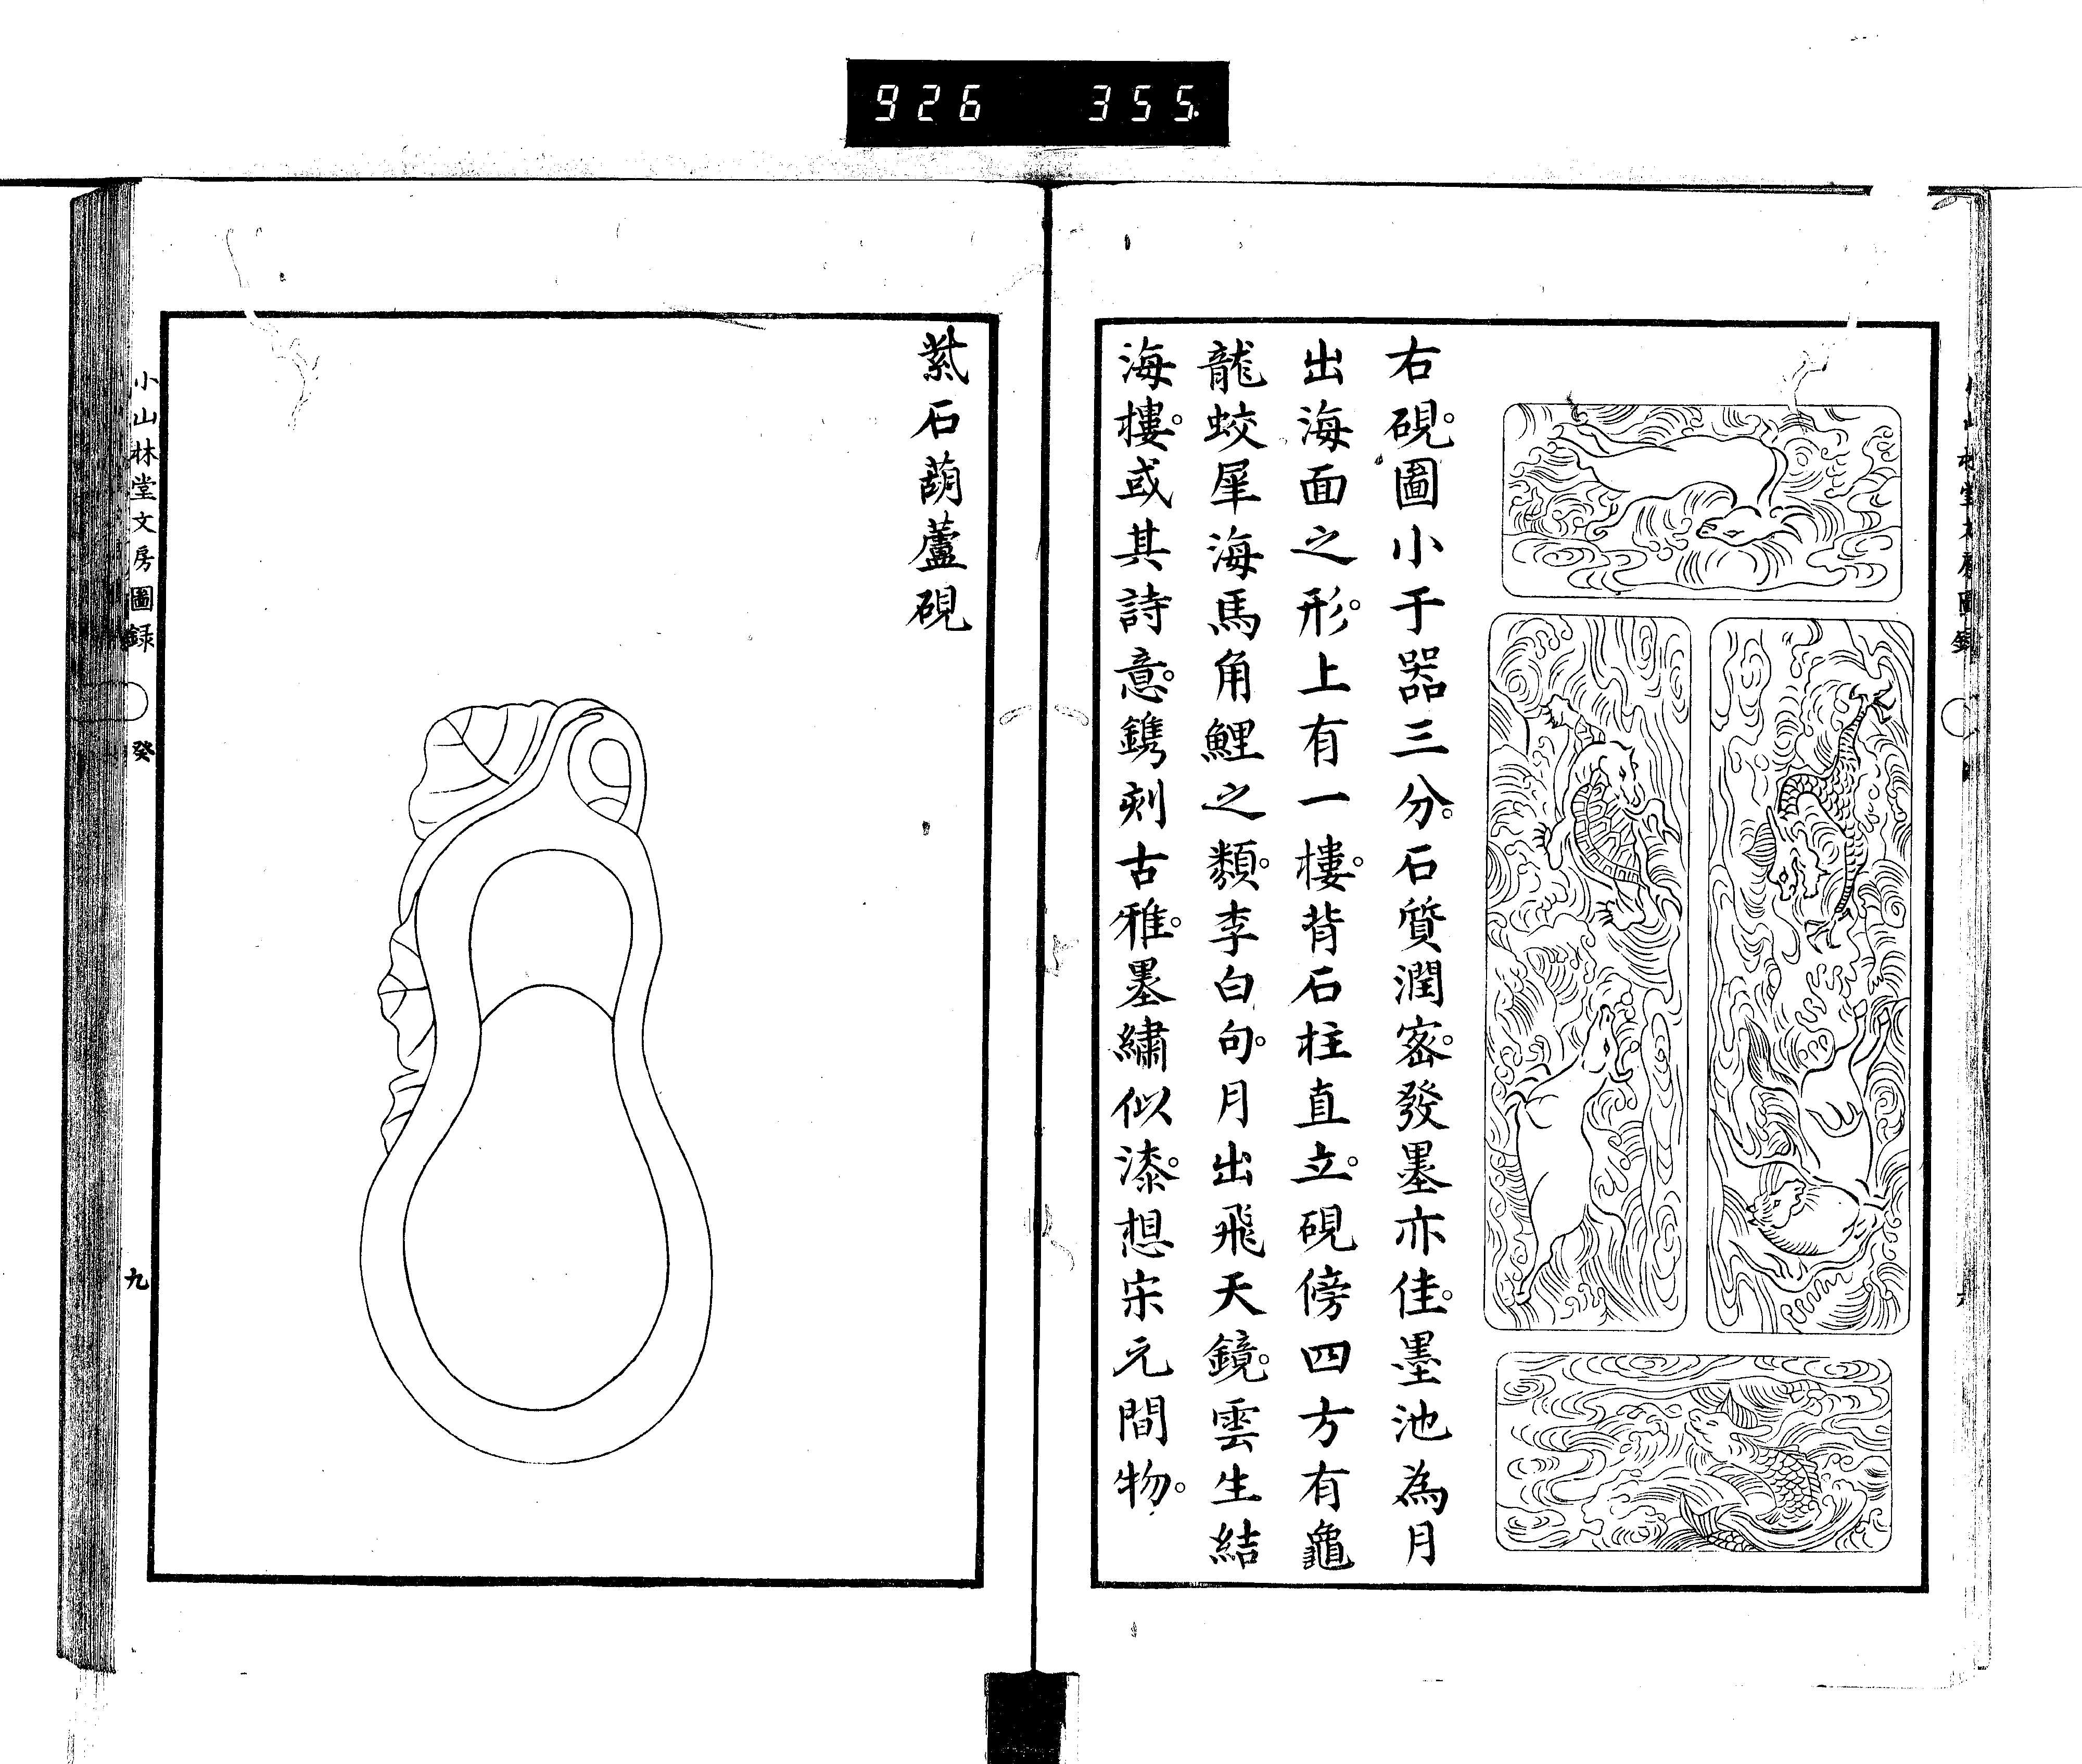 926 355
右硯。圖小于器三分。石質潤密。發墨亦佳。墨池為月
出海面之形。上有一樓。背石柱直立。硯傍四方有龜
龍蛟犀海馬角鯉之類。李白句。月出飛天鏡。雲生結
海樓。或其詩意。鐫刻古雅。墨繡似漆。想宋元間物。
紫石葫蘆硯
小山林堂文房圖録 癸 九